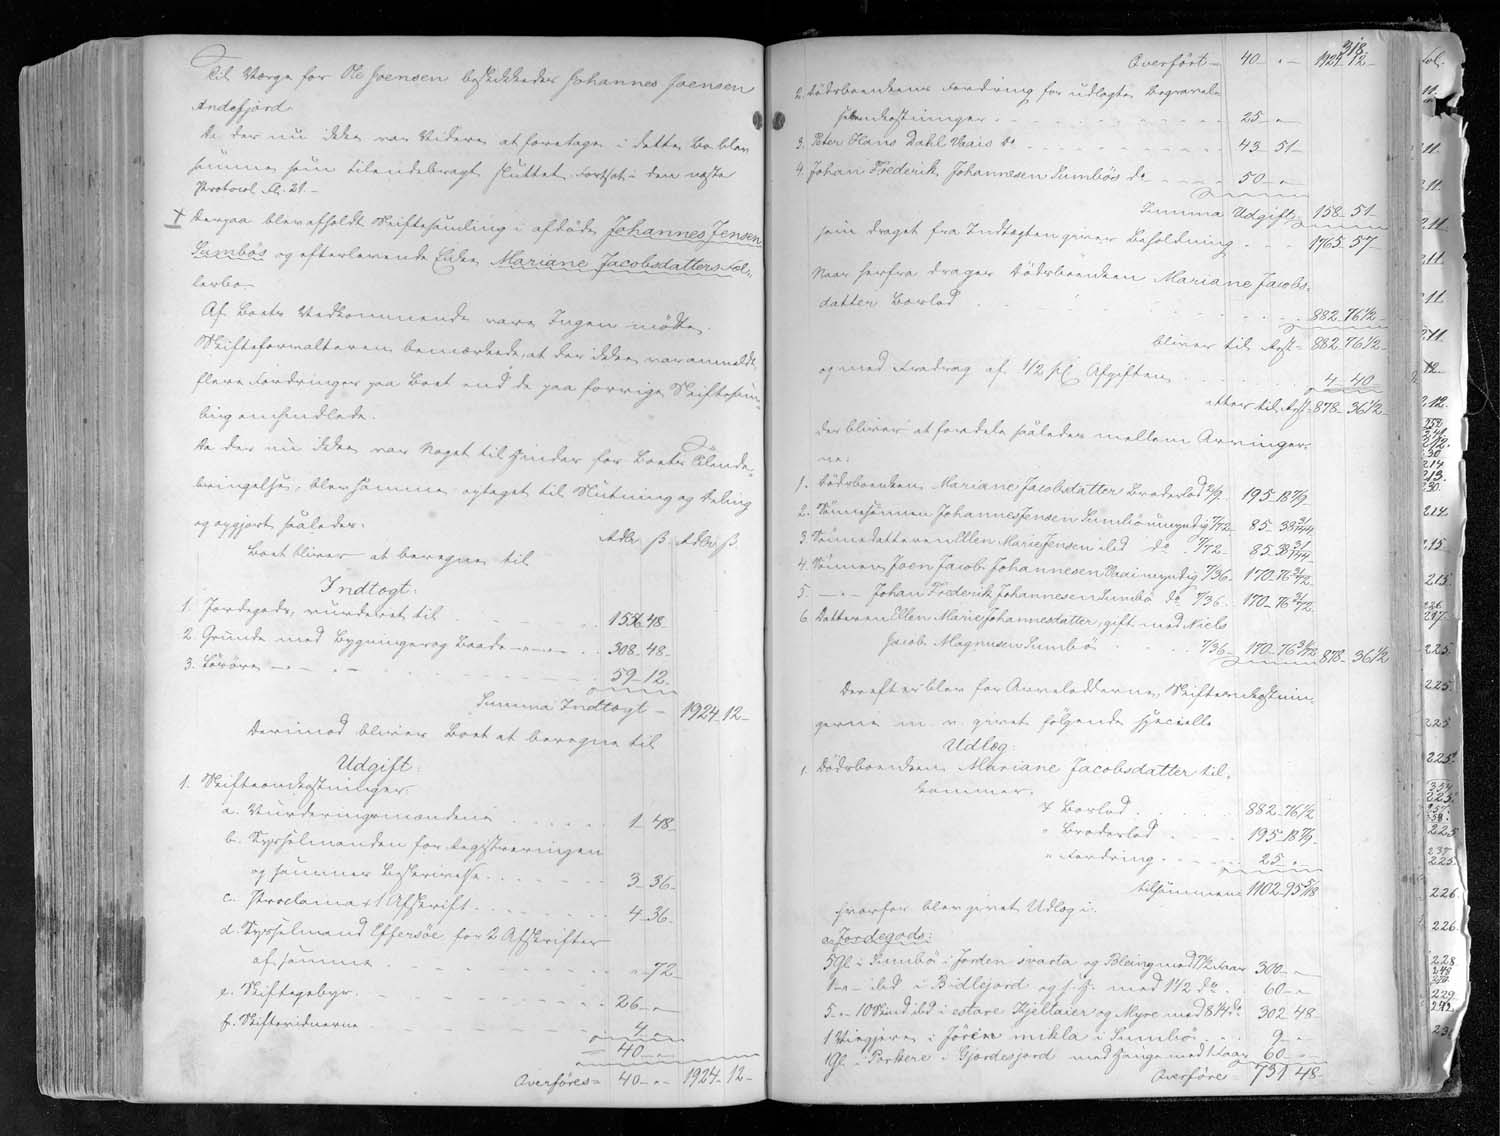 Til Værge for Ole Joensen beskikkedes Johannes Joensen
Andefjord
Da der nu ikke var Videre at foretage i dette Bo blev
samme som tilendebragt sluttet. Fortsat i den næste
Protocol fl. 21.-
Derpaa blev afholdt Skiftesamling i afdøde Johannes Jensen
Sumbøs og efterlevende Enke Mariane Jacobsdatters Fæl-
lerbo.
Af Boets Vedkommende vare Ingen mødte.
Skifteforvalteren bemærkede, at der ikke var anmeldt
flere Fordringer paa Boet end de paa forrige Skiftesam-
ling omhandlede.
Da der nu ikke var Noget til Hinder for Boets Tilende-
bringelse, blev samme optaget til Slutning og Deling
og opgjort saaledes:
Boet bliver at beregne til
Rdlr ß Rdlr ß.
Indtægt:
1. Jordegods, vurderet til 1556 48
2. Grunde med Bygninger og Baade 308. 48.
3. Løsøre 59 12.
Summa Indtægt 1924 12
Derimod bliver Boet at beregne til
Udgift:
1. Skifteomkostninger:
a. Vurderingsmændene 1 48
b. Sysselmanden for Registreringen
og sammes Beskrivelse 3 36
c. Proclama + 1 Afskrift 4 36
d. Sysselmand Effersøe for 2 Afskrifter
af samme " 72
e. Skiftegebyr 26 "
f. Skiftevidnerne 4 "
40 "
Overføres 40 " 1924 12
318
Overført 40 " 1924 12
2. Dødsboenkens Fordring for udlagte Begravel-
sesomkostninger 25 "
3. Peter Hans Dahl Vaais do 43 51
4. Johan Frederik Johannesen Sumbøs do 50 "
Summa Udgift 158 51
som draget fra Indtægten giver Beholdning 1765 57
Naar herfra drages Dødsboenken Mariane Jacobs-
datter Boslod 882 76 1/2
bliver til Rest 882 76 1/2
og med Fradrag af 1/2 pC Afgiften 4 40
atter til Rest 878 36 1/2
der bliver at fordele saaledes mellem Arvinger-
ne:
1. Dødsboenken Mariane Jacobsdatter Broderlod 2/9 195 18 7/9
2. Sønnesønnen Johannes Jensen Sumbø umyndig 7/72 85 38 31/144
3. Sønnedatteren Ellen Marie Jensen ibd do 7/72 85 38 31/144
4. Sønnen Joen Jacob Johannesen Vaai myndig 7/36 170 76 31/72
5. — " — Johan Frederik Johannesen Sumbø do 7/36 170 76 31/72
6. Datteren Ellen Marie Johannesdatter, gift med Niels
Jacob Magnusen Sumbø 7/36 170 76 31/72 878 36 1/2
Derefter blev for Arvelodderne, Skifteomkostnin-
gerne m. v. givet følgende specielle
Udlæg:
1. Dødsboenken Mariane Jacobsdatter til-
kommer:
I Boslod 882 76 1/2
" Broderlod 195 18 7/9
" Fordring 25 "
tilsammen 1102 95 5/18
hvorfor blev givet Udlæg i:
a. Jordegods:
5 Gl i Sumbø i Jorden svarta og Bleing med 7 1/2 Faar 300 "
1 " ibd i Bødlejord og med 1 1/2 do 60 "
5 " 10 Skind ibd i estare Kjeltaier og Myre med 8 1/4 do 302 48
1 i Jørdin mikla i Sumbø 9 "
1 Gl i Porkere i Gjordesjord med Hauge med 1 Faar 60 "
Overføres 731 48